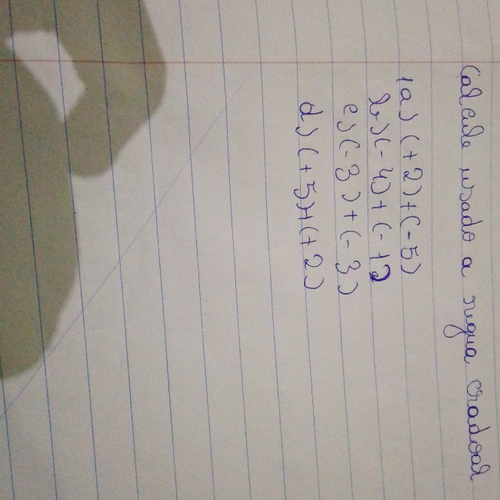 Calcule usado a regua
1a) (+2)+(-5)
b) (-4)+(-1)
c) (-3)+(-3)
d) (+5)+(+2)